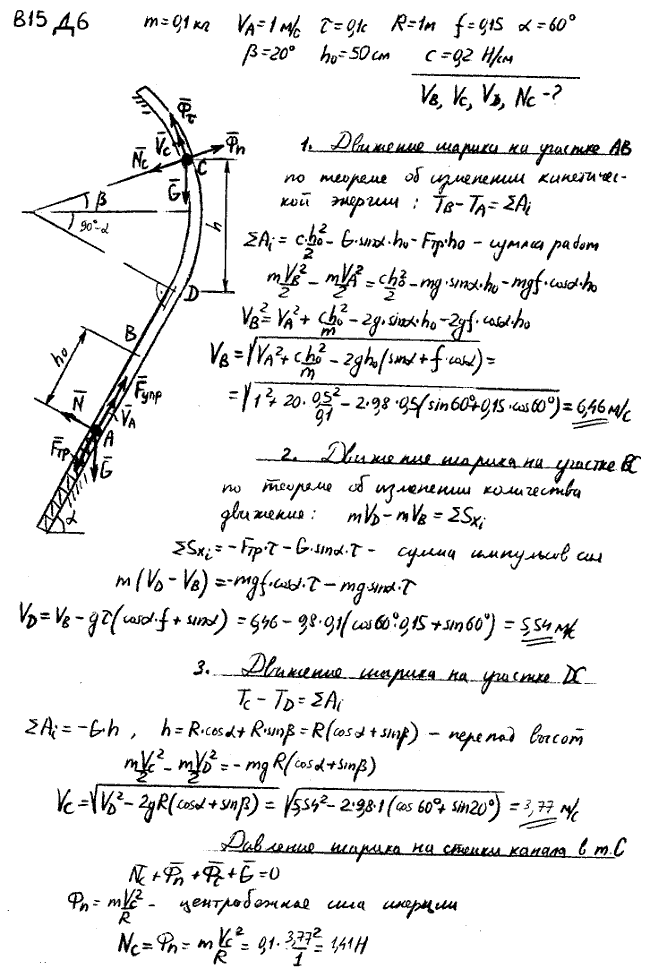 В15 Д6 m=0,1 кг V_A=1 м/с τ=0,1с R=1м f=0,15 α=60°
β=20° h₀=50см c=0,2 Н/см
V_B, V_C, V_D, N_C -?
Φ̄_τ
V̄_C
Φ̄_n
N̄_C
C
Ḡ
β
90°-α
h
D
B
h₀
N̄
F̄_упр
V̄_A
A
F̄_тр
Ḡ
α
1. Движение шарика на участке АВ
по теореме об изменении кинетичес-
кой энергии : T_B-T_A=ΣA_i
ΣA_i= c·h₀²/2 - G·sinα·h₀-F_тр·h₀ - сумма работ
mV_B²/2 - mV_A²/2 = ch₀²/2 -mg·sinα·h₀-mgf·cosα·h₀
V_B²=V_A²+ ch₀²/m -2g·sinα·h₀-2gf·cosα·h₀
V_B=√(V_A²+ ch₀²/m -2gh₀(sinα+f·cosα)) =
=√(1²+20· 0,5²/0,1 -2·9,8·0,5(sin60°+0,15·cos60°)) = 6,46 м/с
2. Движение шарика на участке ВС
по теореме об изменении количества
движения: mV_D-mV_B=ΣS_xi
ΣS_xi=-F_тр·τ-G·sinα·τ - сумма импульсов сил
m(V_D-V_B)=-mgf·cosα·τ-mg·sinα·τ
V_D=V_B-gτ(cosα·f+sinα) = 6,46-9,8·0,1(cos60°·0,15+sin60°) = 5,54 м/с
3. Движение шарика на участке DC
T_C-T_D=ΣA_i
ΣA_i=-G·h , h=R·cosα+R·sinβ=R(cosα+sinβ) - перепад высот
mV_C²/2 - mV_D²/2 = -mgR(cosα+sinβ)
V_C=√(V_D²-2gR(cosα+sinβ)) = √(5,54²-2·9,8·1(cos60°+sin20°)) = 3,77 м/с
Давление шарика на стенки канала в т.С
N̄_C+Φ̄_n+Φ̄_τ+Ḡ=0
Φ_n= mV_C²/R - центробежная сила инерции
N_C=Φ_n= m V_C²/R = 0,1· 3,77²/1 = 1,41Н